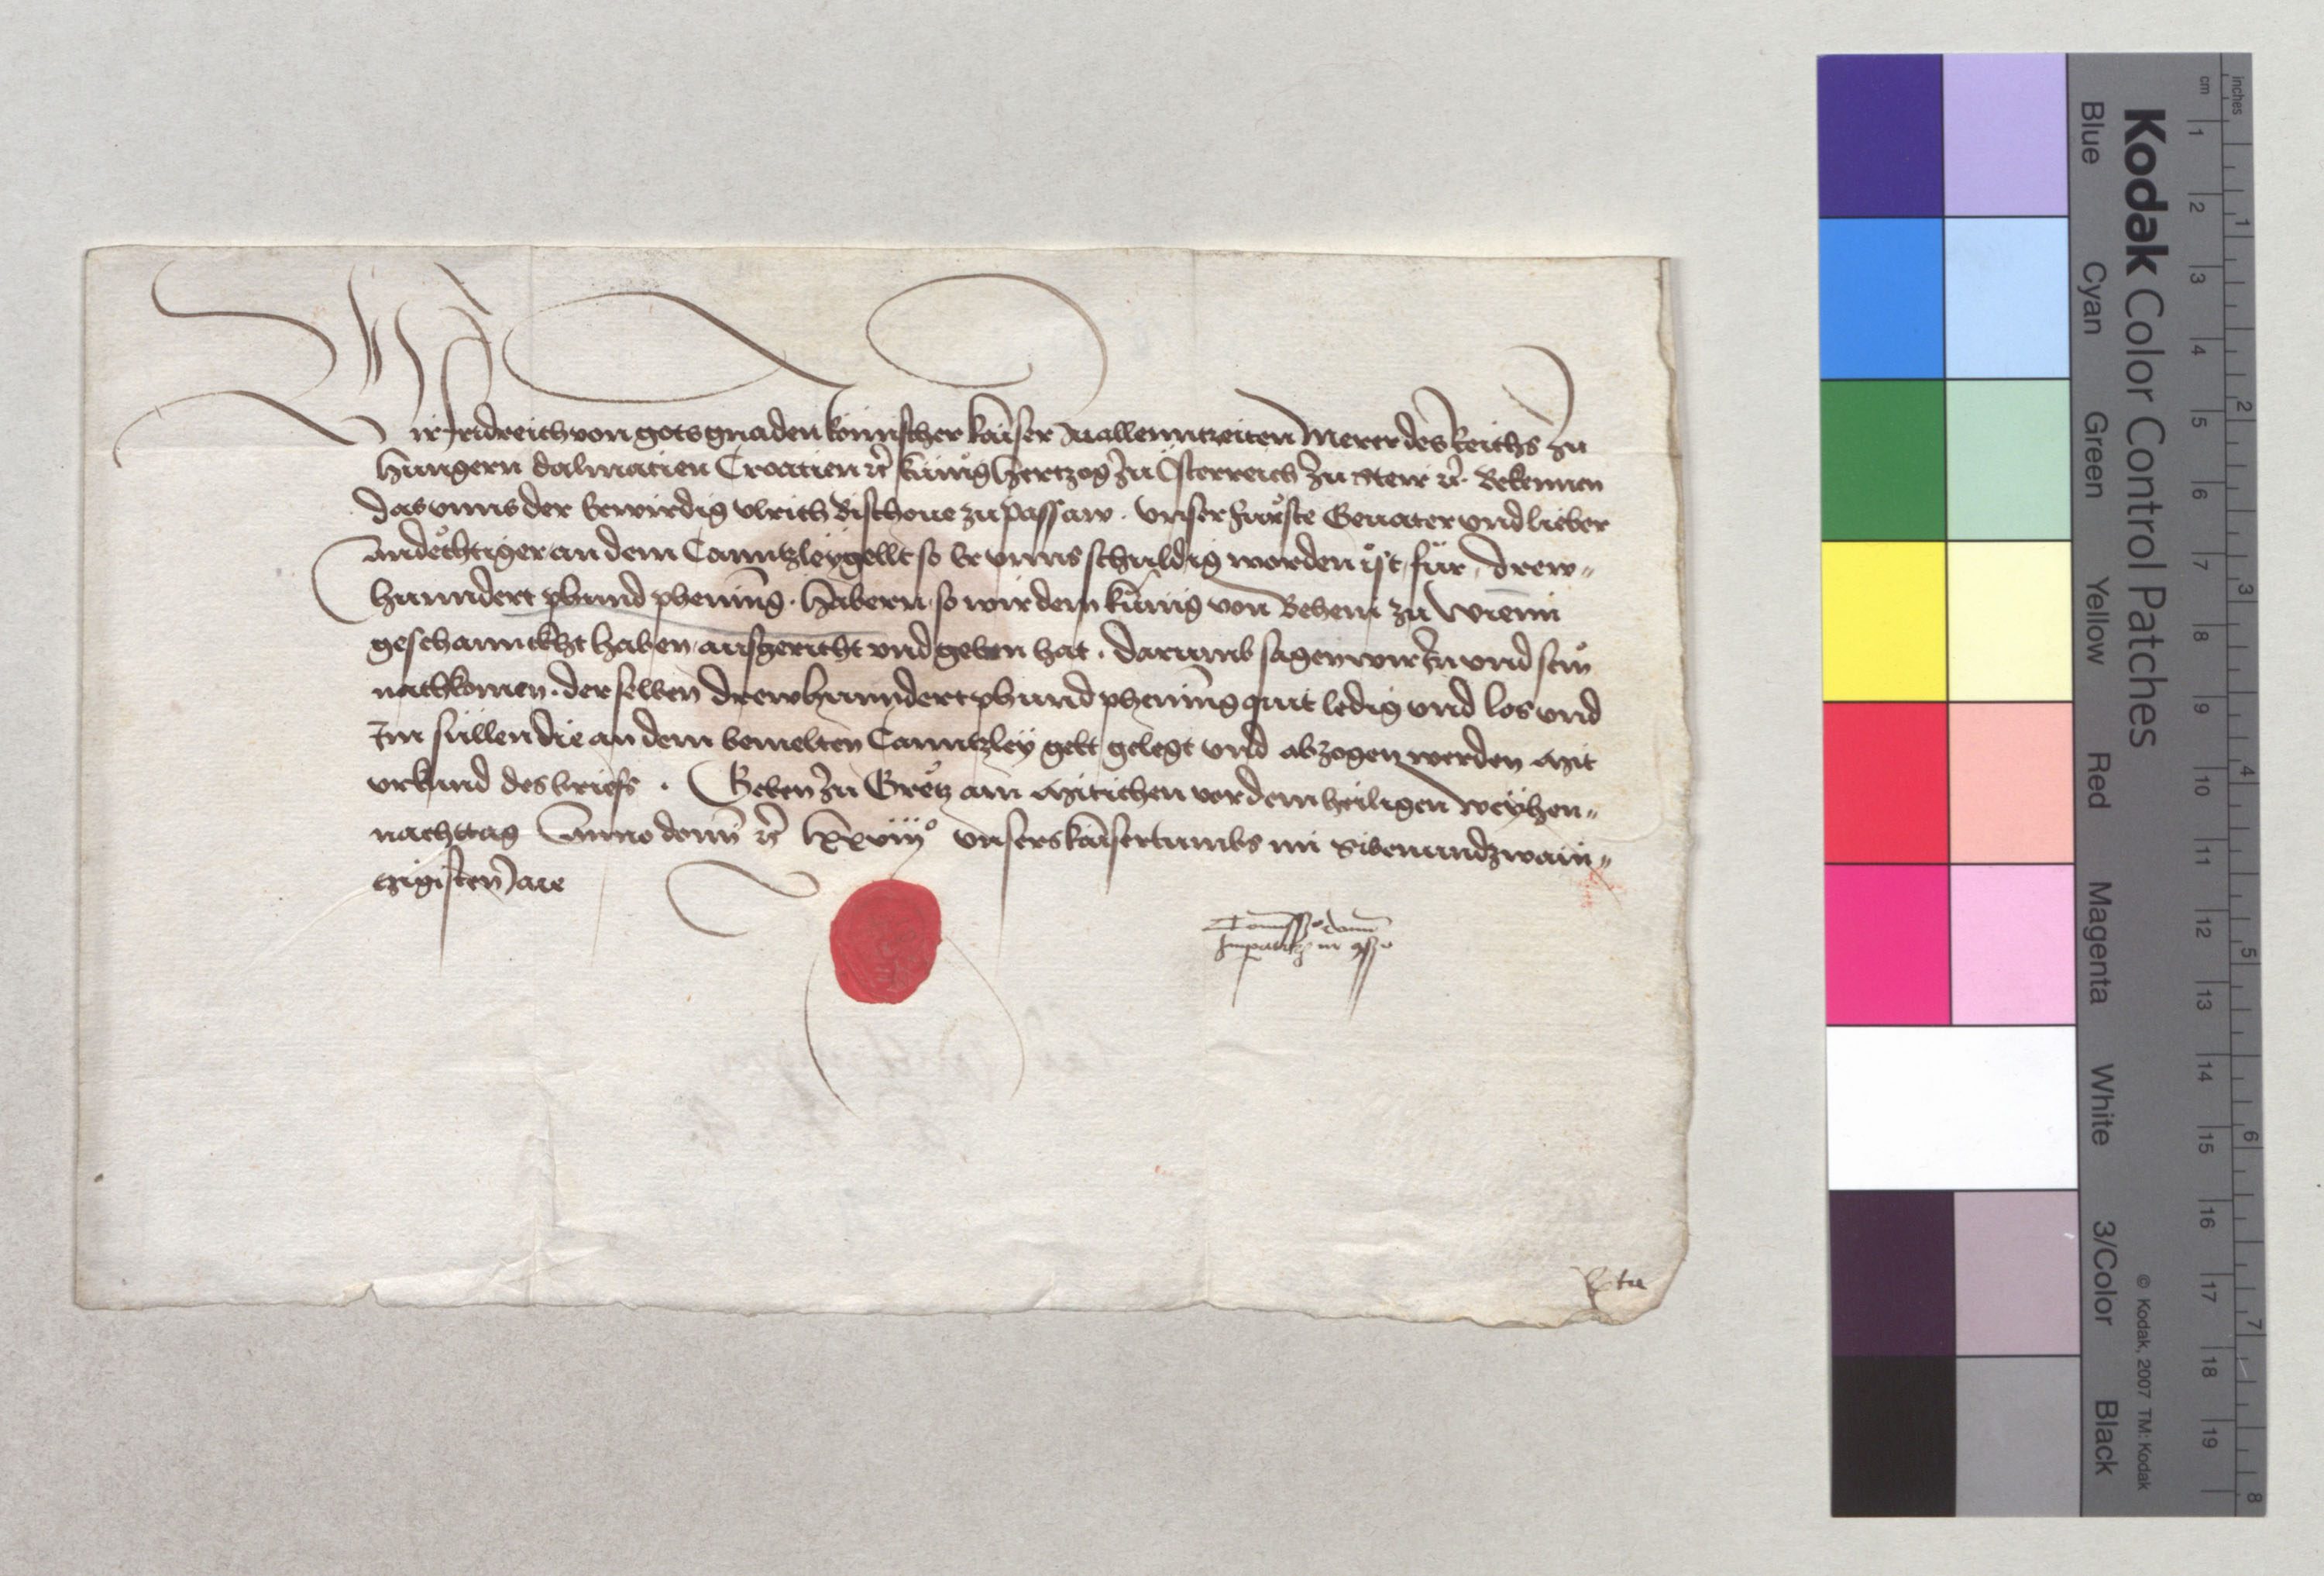 Wir Fridreich von gots gnaden Romischer kaiser zuallenntzeiten Merer des Reichs zu
Hungern Dalmatien Croatien etc kunig Hertzog zu Österreich zu Steir etc. Bekennen
das vnns der Erwirdig Vlrich Bischoue zu passaw. vnser furste Geuater vnd lieber
andechtiger an dem Canntzleygellt so Er vnns schuldig worden ist, fur, drew„
hunndert phund phening. habern, so wir dem kunig von Behem zu Wienn
geschannckht haben, ausgericht vnd geben hat. Darumb sagen wir In vnd sein
nachkomen. derselben drewhunndert phund phening quit ledig vnd los vnd
Im sullen die an dem bemelten Canntzley gelt gelegt vnd abzogen werden Mit
vrkund des briefs. Geben zu Gretz am Mitichen vor dem heiligen Weyhen„
nachttag Anno domi etc lxxviijº vnsers kaisertumbs im Sibenundzwain„
tzigisten Jare
Comissio domi
Impatoris in 9silio
Kodak Color Control Patches
Blue Cyan Green Yellow Red Magenta White 3/Color Black
© Kodak, 2007 TM: Kodak
cm 1 2 3 4 5 6 7 8 9 10 11 12 13 14 15 16 17 18 19
inches 1 2 3 4 5 6 7 8